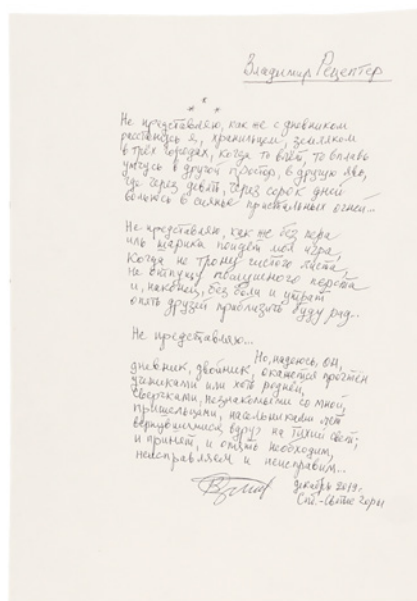 Владимир Рецептер
* * *
Не представляю, как же с дневником
расстанусь я, хранильцем, земляком
в трёх городах, когда то влёт, то вплавь
умчусь в другой простор, в другую явь,
где через девять, через сорок дней
вольюсь в сиянье пристальных огней...
Не представляю, как же без пера
иль шарика пойдёт моя игра,
когда не трону чистого листа,
не отпущу послушного перста
и, наконец, без боли и утрат
опять друзей приблизить буду рад...
Не представляю...
Но, надеюсь, он,
дневник, двойник, окажется прочтён
учениками или хоть роднёй,
сверчками, незнакомыми со мной,
пришельцами, насельниками лет
вернувшимися вдруг на тихий свет;
и принят, и опять необходим,
неисправляем и неисправим...
декабрь 2019.
Спб. - Святые Горы